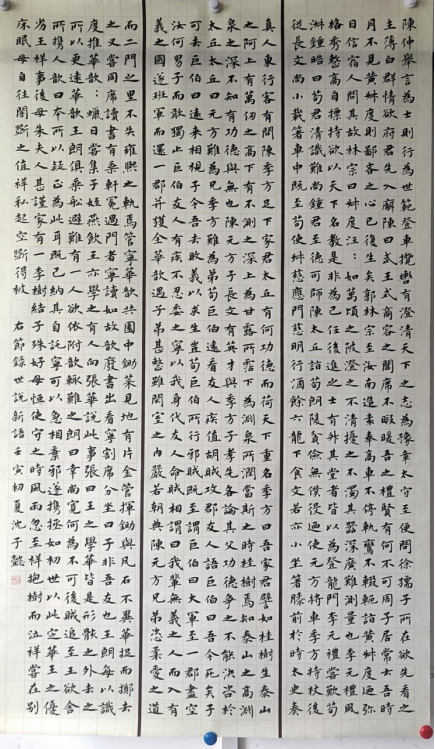 陳仲舉言為士則行為世範登車攬轡有澄清天下之志為豫章太守至便問徐孺子所在欲先看之
主薄白群情欲府君先入廨陳曰武王式商容之閭席不暇煖吾之禮賢有何不可周子居常云吾時
月不見黃叔度則鄙吝之心已復生矣郭林宗至汝南造袁奉高車不停軌鸞不輟軛詣黃叔度迺彌
日信宿人問其故林宗曰叔度汪汪如萬頃之陂澄之不清擾之不濁其器深廣難測量也李元禮風
格秀整高自標持欲以天下名教是非為己任後進之士有升其堂者皆以為登龍門李元禮嘗歎荀
淑鍾皓曰荀君清識難尚鍾君至德可師陳太丘詣荀朗陵貧儉無僕役迺使元方將車季方持杖後
從長文尚小載著車中既至荀使叔慈應門慈明行酒餘六龍下食文若亦小坐著膝前於時太史奏
真人東行客有問陳季方足下家君太丘有何功德而荷天下重名季方曰吾家君譬如桂樹生泰山
之阿上有萬仞之高下有不測之深上為甘露所霑下為淵泉所潤當斯之時桂樹焉知泰山之高淵
泉之深不知有功德與無也陳元方子長文有英才與季方子孝先各論其父功德爭之不能決咨於
太丘太丘曰元方難為兄季方難為弟荀巨伯遠看友人疾值胡賊攻郡友人語巨伯曰吾今死矣子
可去巨伯曰遠來相視子令吾去敗義以求生豈荀巨伯所行邪賊既至謂巨伯曰大軍至一郡盡空
汝何男子而敢獨止巨伯曰友人有疾不忍委之寧以我身代友人命賊相謂曰我輩無義之人而入有
義之國遂班軍而還一郡並獲全華歆遇子弟甚整雖閒室之內嚴若朝典陳元方兄弟恣柔愛之道
而二門之里不失雍熙之軌焉管寧華歆共園中鋤菜見地有片金管揮鋤與瓦石不異華捉而擲去
之又嘗同席讀書有乘軒冕過門者寧讀如故歆廢書出看寧割席分坐曰子非吾友也王朗每以識
度推華歆歆蠟日嘗集子姪燕飲王亦學之有人向張華說此事張曰王之學華皆是形骸之外去之
所以更遠華歆王朗俱乘船避難有一人欲依附歆輒難之朗曰幸尚寬何為不可後賊追至王欲舍
所攜人歆曰本所以疑正為此耳既已納其自託寧可以急相棄邪遂攜拯如初世以此定華王之優
劣王祥事後母朱夫人甚謹家有一李樹結子殊好母恆使守之時風雨忽至祥抱樹而泣祥嘗在別
床眠母自往闇斫之值祥私起空斫得被 右節錄世說新語壬寅初夏沈子懿